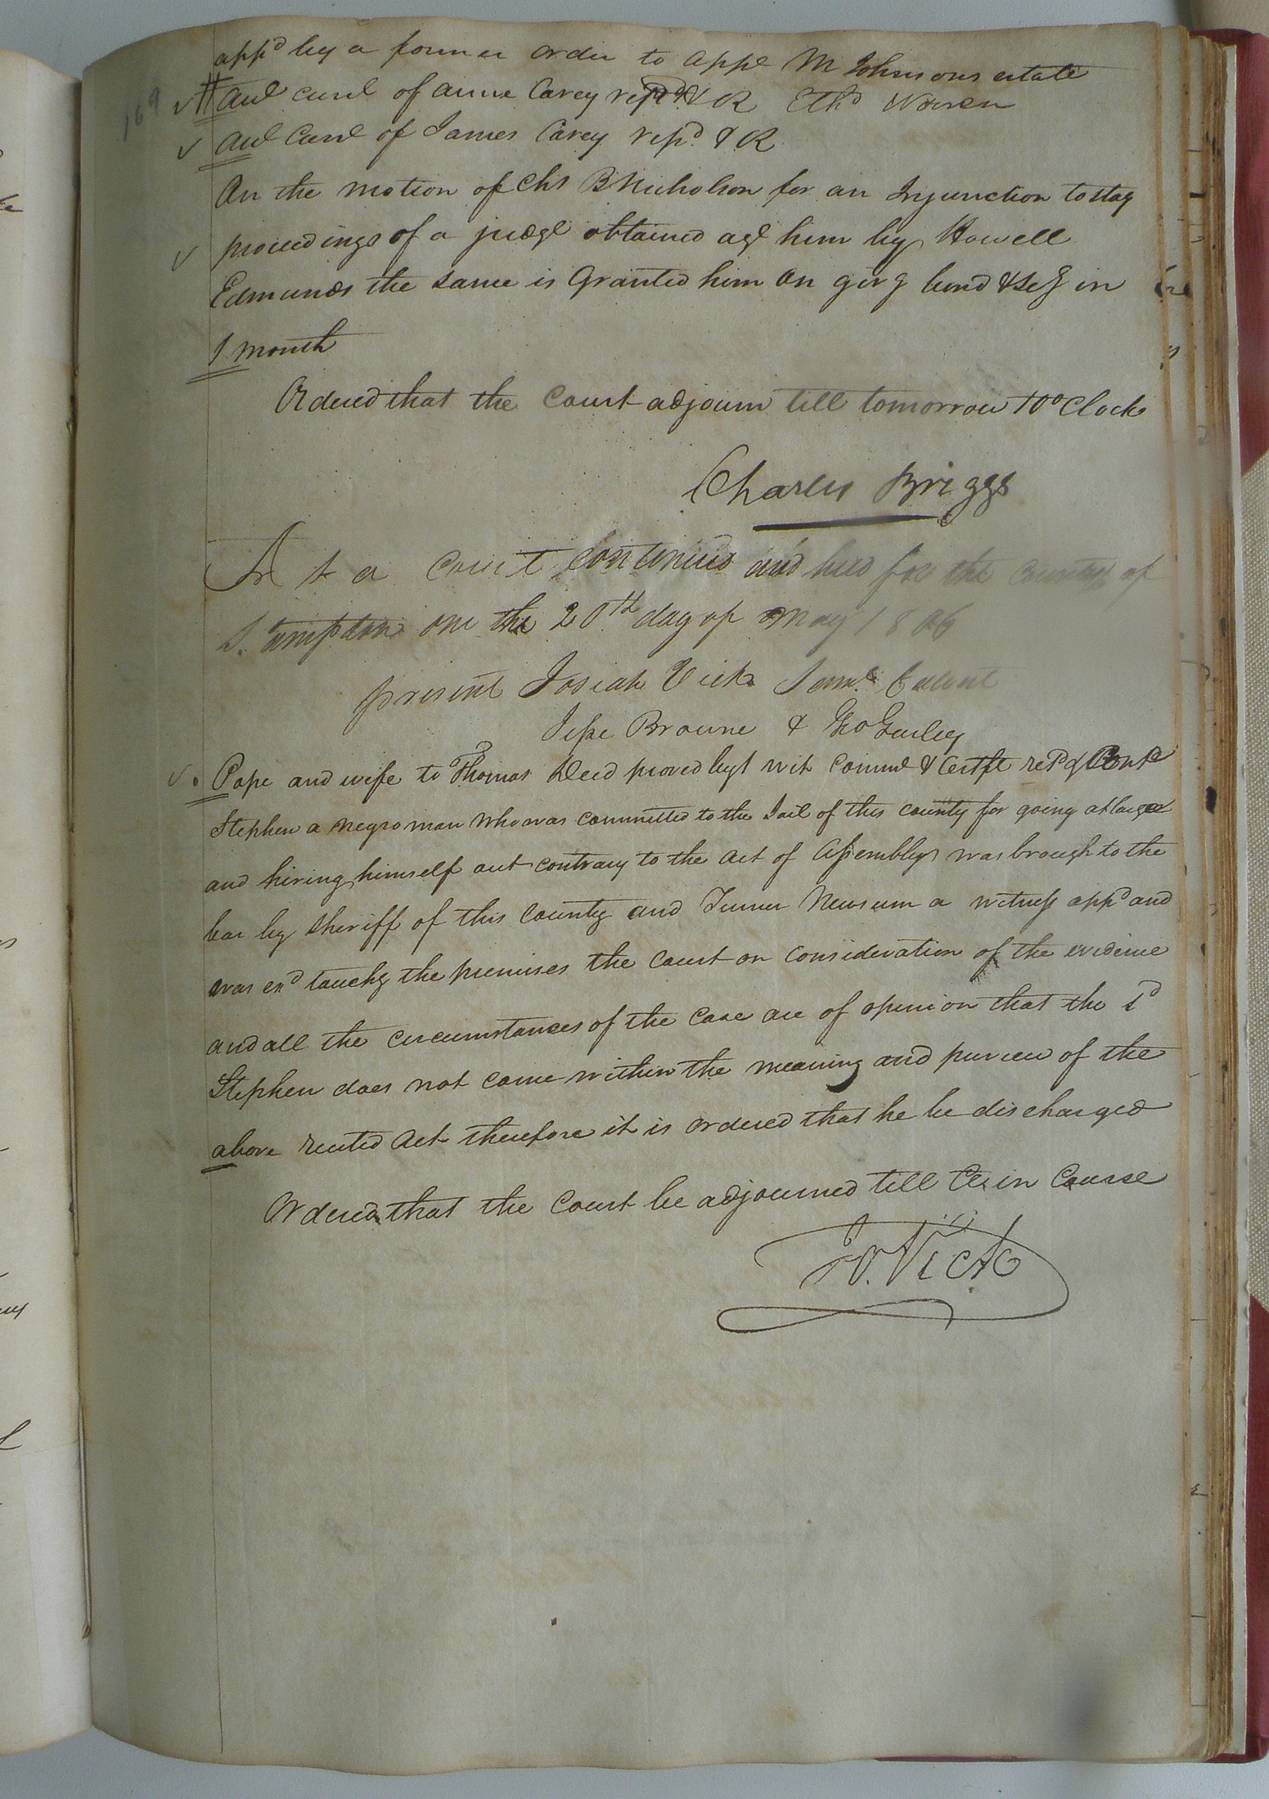 169
appd by a former order to appe M Johnsons estate
Aud curl of Anne Carey repd & R Ethd Warren
Aud Curl of James Carey repd & R
On the motion of Chs B Nicholson for an Injunction to stay
proceedings of a judgt obtained agt him by Howell
Edmunds the same is Granted him on givg bond & sey in
1 month
Ordered that the Court adjourn till tomorrow 10 oClock
Charles Briggs
At a Court Continued and held for the County of
S.hampton on the 20th day of May 1806
present Josiah Vick Saml Calvert
Jesse Browne & Geo Gurley
Pope and wife to Thomas Deed proved by 1 wit Comml & Certft retd &
Stephen a negro man who was committed to the Jail of this County for going at large
and hiring himself out contrary to the act of Assembly was brough to the
bar by Sheriff of this County and Turner Newsum a witness appd and
was exd touchg the premises the Court on consideration of the evidence
and all the circumstances of the case are of opinion that the sd
Stephen does not come within the meaning and purview of the
above recited Act therefore it is ordered that he be discharged
Ordered that the Court be adjourned till Ct in Course
Jo. Vick